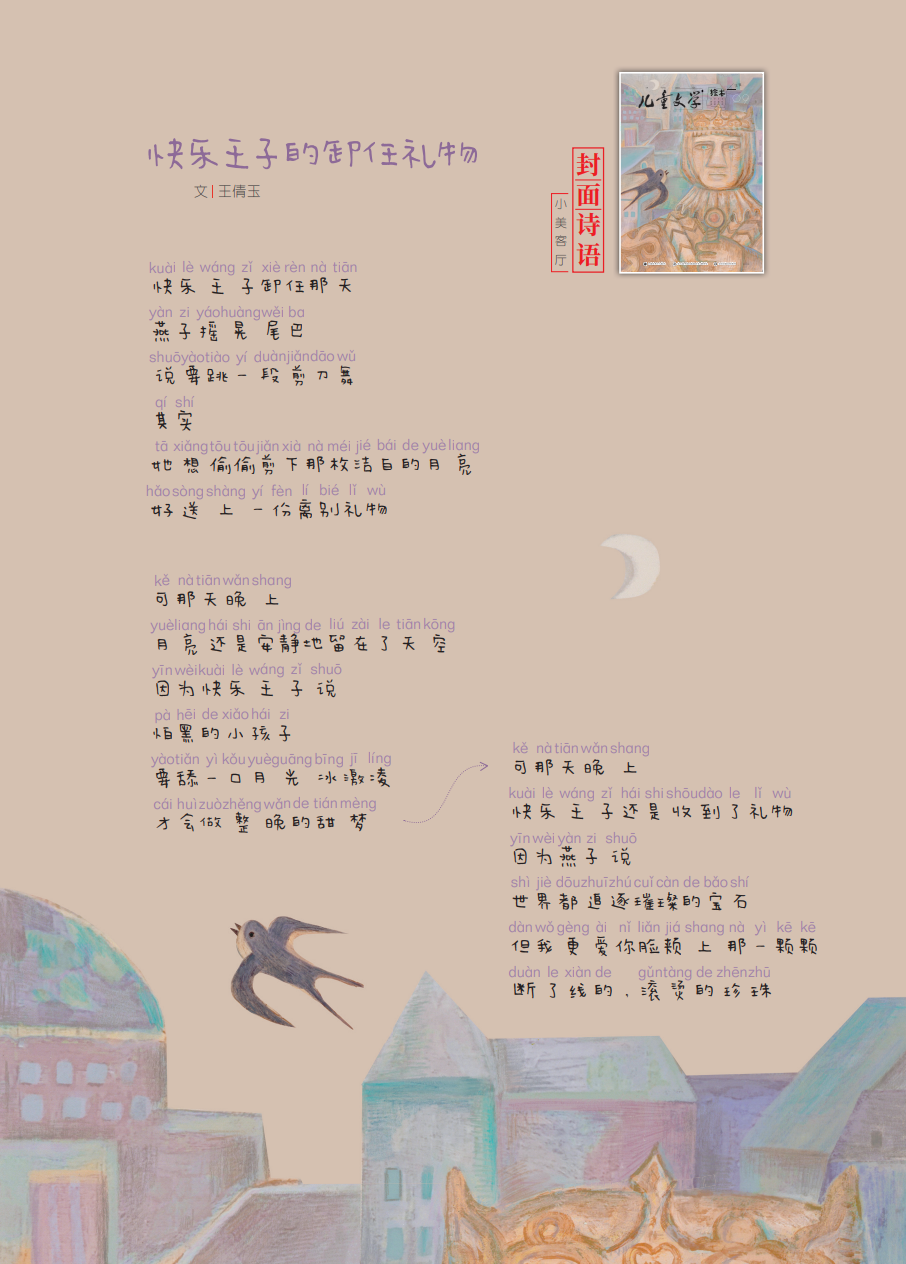 儿童文学
绘本
快乐王子的卸任礼物
文|王倩玉
封面诗语
小美客厅
kuài lè wáng zǐ xiè rèn nà tiān
快乐王子卸任那天
yàn zi yáohuàngwěi ba
燕子摇晃尾巴
shuōyàotiào yí duànjiǎndāo wǔ
说要跳一段剪刀舞
qí shí
其实
tā xiǎngtōu tōu jiǎn xià nà méi jié bái de yuè liang
她想偷偷剪下那枚洁白的月亮
hǎo sòng shàng yí fèn lí bié lǐ wù
好送上一份离别礼物
kě nà tiān wǎn shang
可那天晚上
yuèliang hái shi ān jìng de liú zài le tiān kōng
月亮还是安静地留在了天空
yīn wèi kuài lè wáng zǐ shuō
因为快乐王子说
pà hēi de xiǎo hái zi
怕黑的小孩子
yàotiǎn yì kǒu yuèguāng bīng jī líng
要舔一口月光冰激凌
cái huì zuòzhěng wǎn de tián mèng
才会做整晚的甜梦
kě nà tiān wǎn shang
可那天晚上
kuài lè wáng zǐ hái shi shōudào le lǐ wù
快乐王子还是收到了礼物
yīn wèi yàn zi shuō
因为燕子说
shì jiè dōuzhuīzhú cuǐ càn de bǎo shí
世界都追逐璀璨的宝石
dàn wǒ gèng ài nǐ liǎn jiá shang nà yì kē kē
但我更爱你脸颊上那一颗颗
duàn le xiàn de gǔntàng de zhēnzhū
断了线的、滚烫的珍珠